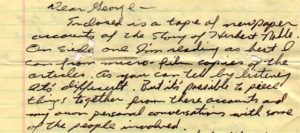 Dear George –
Enclosed is a tape of newspaper
accounts of the Story of Herbert
On Side one I'm reading as best I
can from micro-film copies of the
articles. As you can tell by listening
it's difficult. But it's possible to piece
things together from these accounts and
my own personal conversations with some
of the people involved.